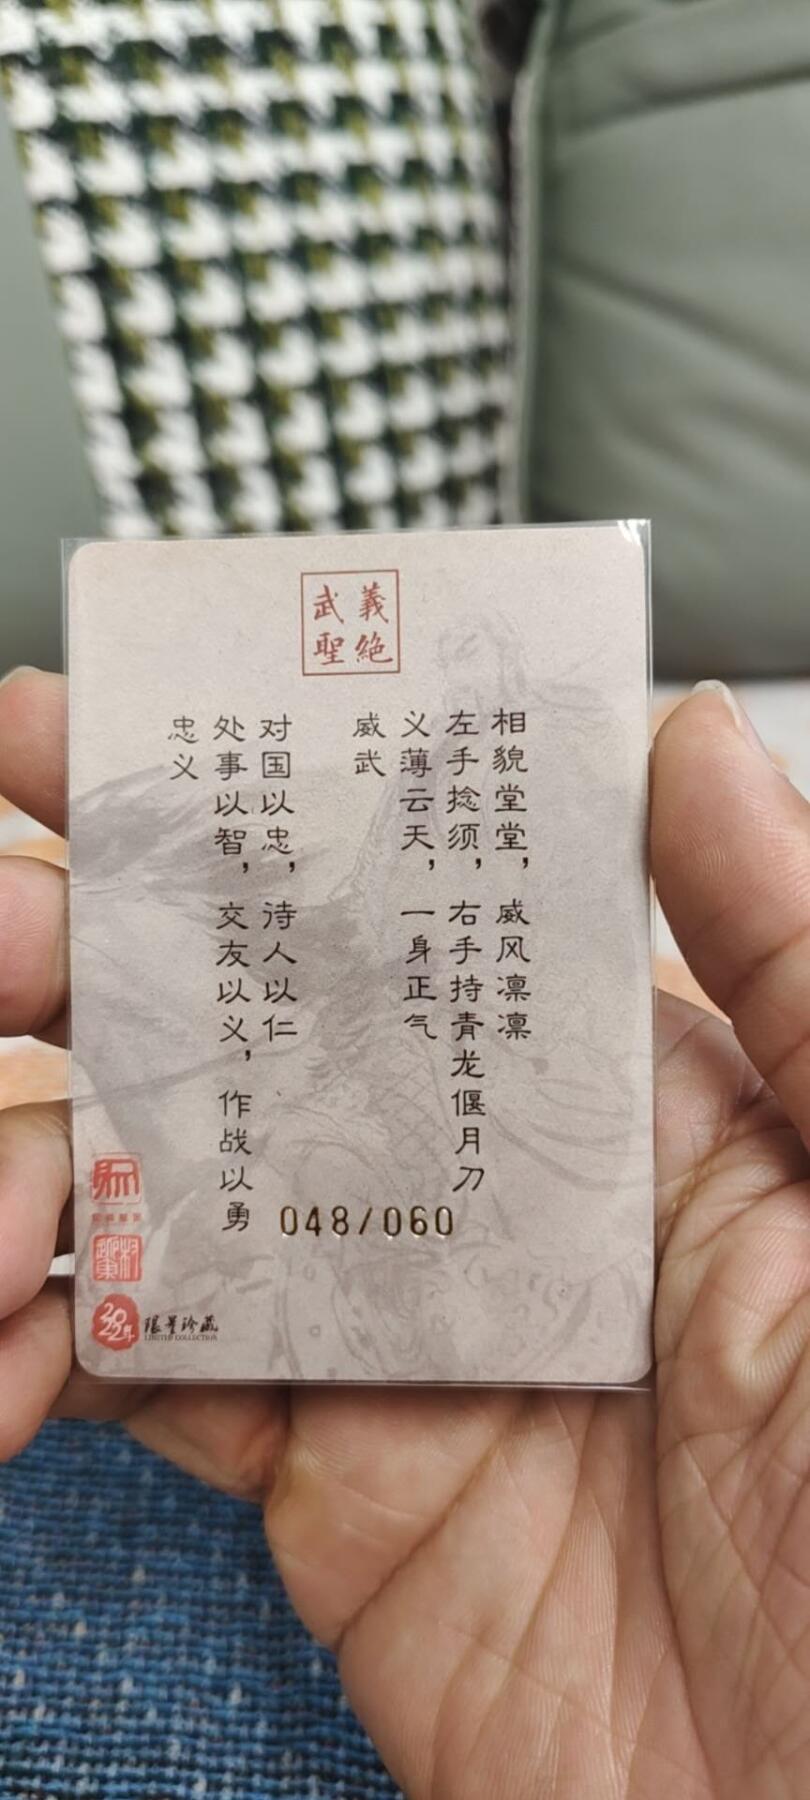 義絶
武聖
相貌堂堂，威风凛凛
左手捻须，右手持青龙偃月刀
义薄云天，一身正气
威武
对国以忠，诗人以仁
处事以智，交友以义，作战以勇
忠义
048/060
限量珍藏
LIMITED COLLECTION